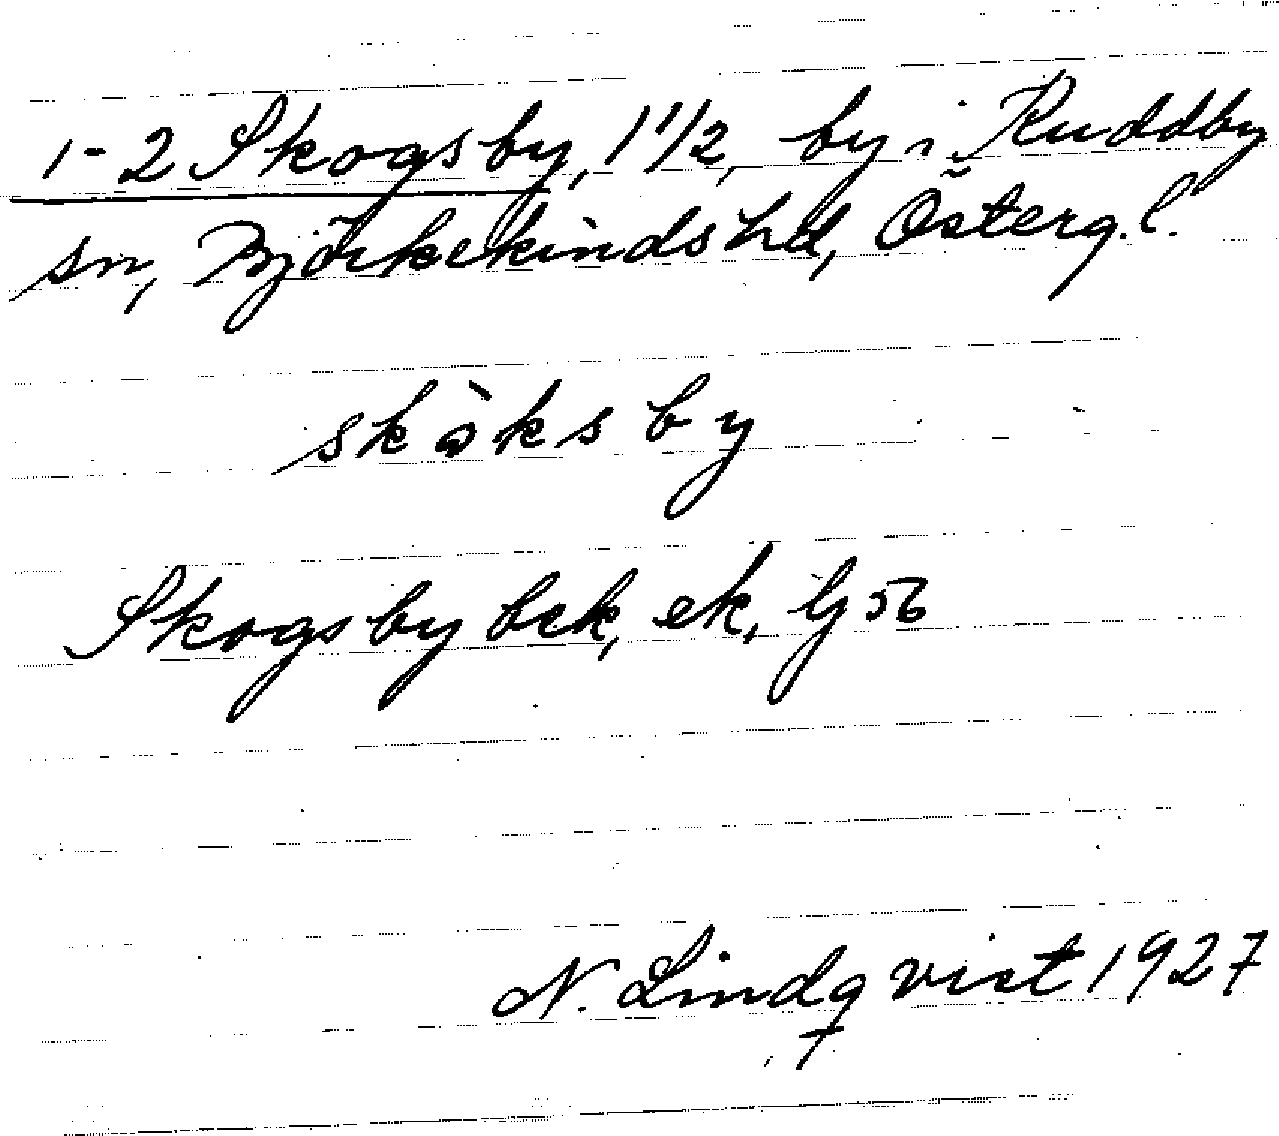 1-2 Skogsby, 1 1/2, by i Ruddby
sn, Björkekinds hd, Österg.l.
skò̩ksby
Skogsby bek, ek, lj 56
N. Lindqvist 1927
7